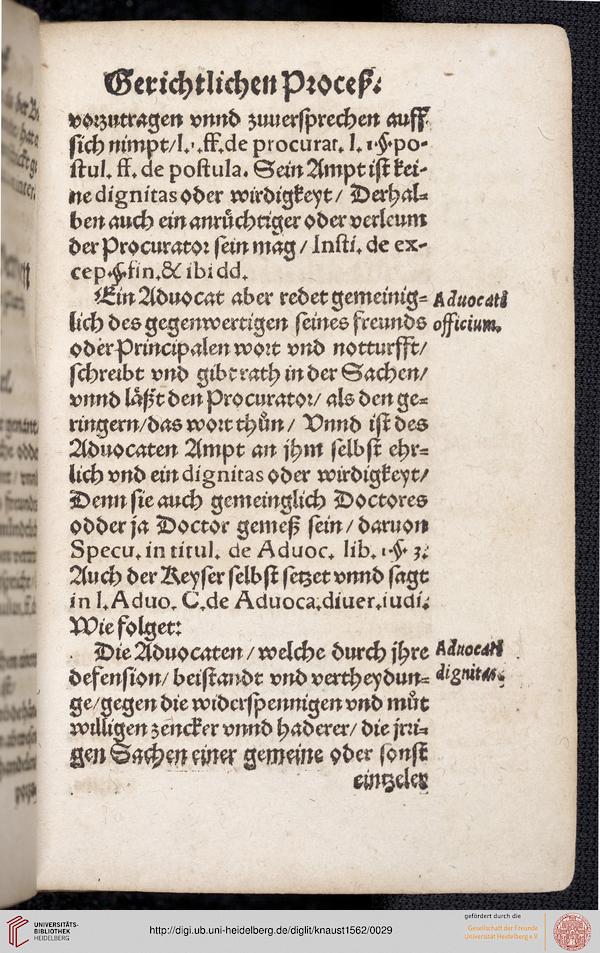 Gerichtlichen Proceß.
vorzutragen vnnd zuuersprechen auff
sich nimpt/l.1.ff.de procurat. l. 1.§.po-
stul. ff. de postula. Sein Ampt ist kei-
ne dignitas oder wirdigkeyt/ Derhal-
ben auch ein anrüchtiger oder verleum
der Procurator sein mag/ Insti. de ex-
cep.§.fin.& ibi dd.
Ein Aduocat aber redet gemeinig-
Aduocati
lich des gegenwertigen seines freunds
officium.
oder Principalen wort vnd notturfft/
schreibt vnd gibt rath in der Sachen/
vnnd läßt den Procurator/ als den ge-
ringern/das wort thůn/ Vnnd ist des
Aduocaten Ampt an jhm selbst ehr-
lich vnd ein dignitas oder wirdigkeyt/
Denn sie auch gemeinglich Doctores
odder ja Doctor gemeß sein/ daruon
Specu. in titul. de Aduoc. lib. 1.§. 3.
Auch der Keyser selbst setzet vnnd sagt
in l. Aduo. C. de Aduoca.diuer.iudi.
Wie folget:
Die Aduocaten/welche durch jhre
Aduocati
defension/ beistandt vnd vertheydun-
dignitas.
ge/gegen die widerspennigen vnd můt
willigen zencker vnnd haderer/ die jrri-
gen Sachen einer gemeine oder sonst
eintzeler
UNIVERSITÄTS-
BIBLIOTHEK
HEIDELBERG
http://digi.ub.uni-heidelberg.de/diglit/knaust1562/0029
gefördert durch die
Gesellschaft der Freunde
Universität Heidelberg e.V.